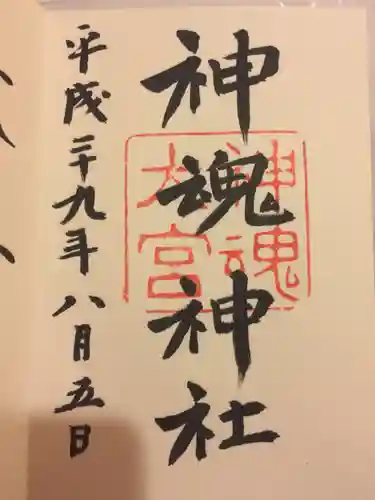 神魂神社
神魂
大宮
平成二十九年八月五日